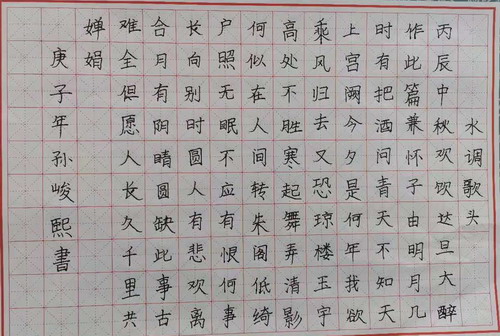 水调歌头
丙辰中秋欢饮达旦大醉
作此篇兼怀子由明月几
时有把酒问青天不知天
上宫阙今夕是何年我欲
乘风归去又恐琼楼玉宇
高处不胜寒起舞弄清影
何似在人间转朱阁低绮
户照无眠不应有恨何事
长向别时圆人有悲欢离
合月有阴晴圆缺此事古
难全但愿人长久千里共
婵娟
庚子年孙峻熙書